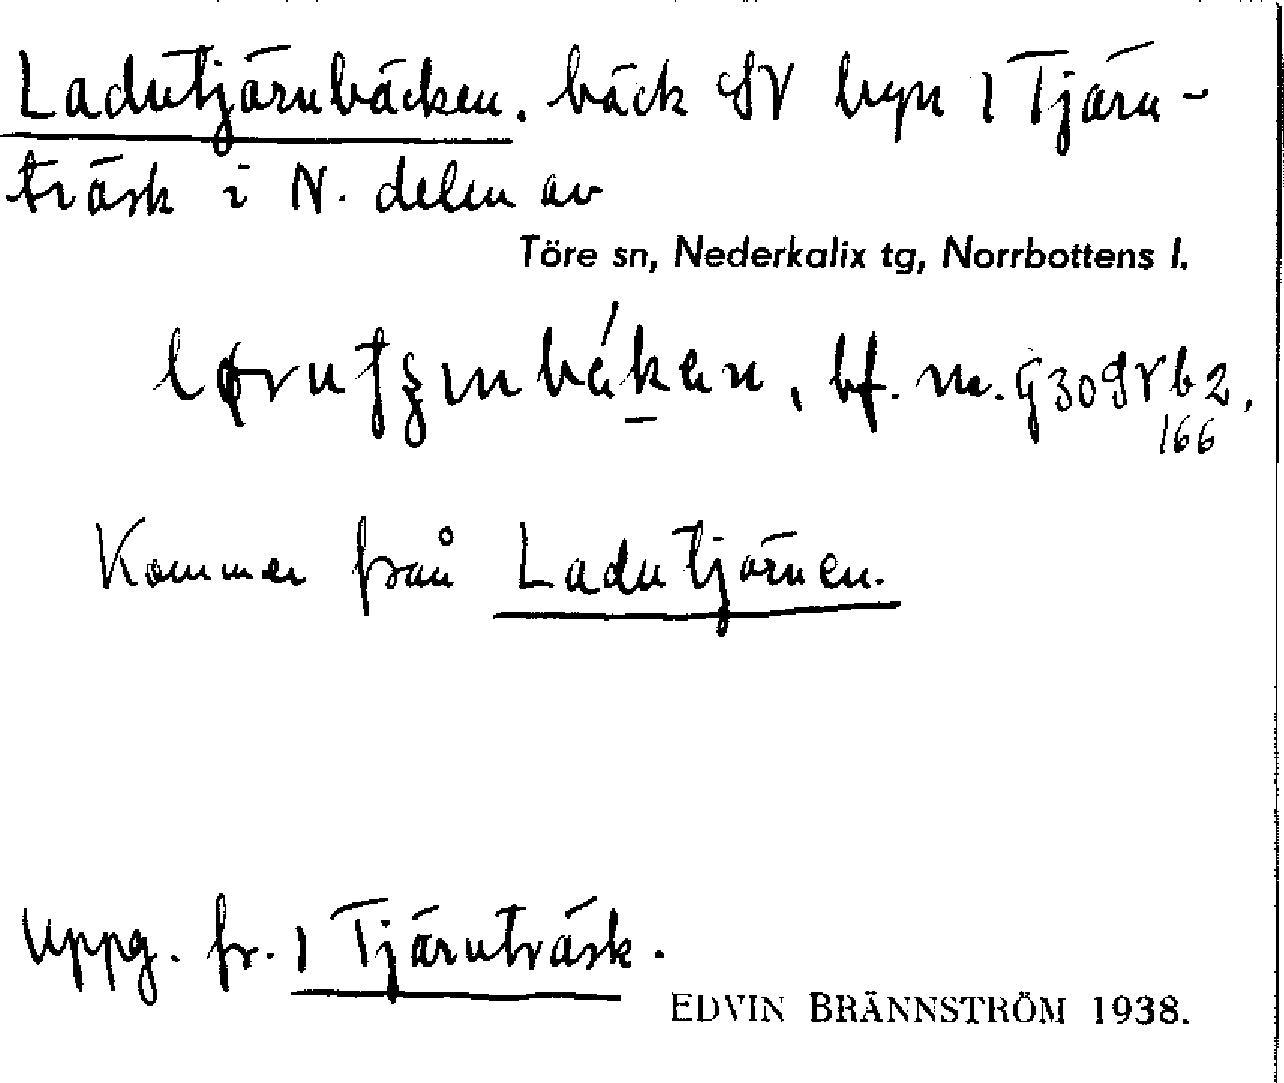 Ladutjärnbäcken. bäck SV byn 1 Tjärn-
träsk i N. delen av
Töre sn, Nederkalix tg, Norrbottens l.
bf. m.
166
Kommer från Ladutjärnen.
Uppg. fr. 1 Tjärnträsk.
EDVIN BRÄNNSTRÖM 1938.